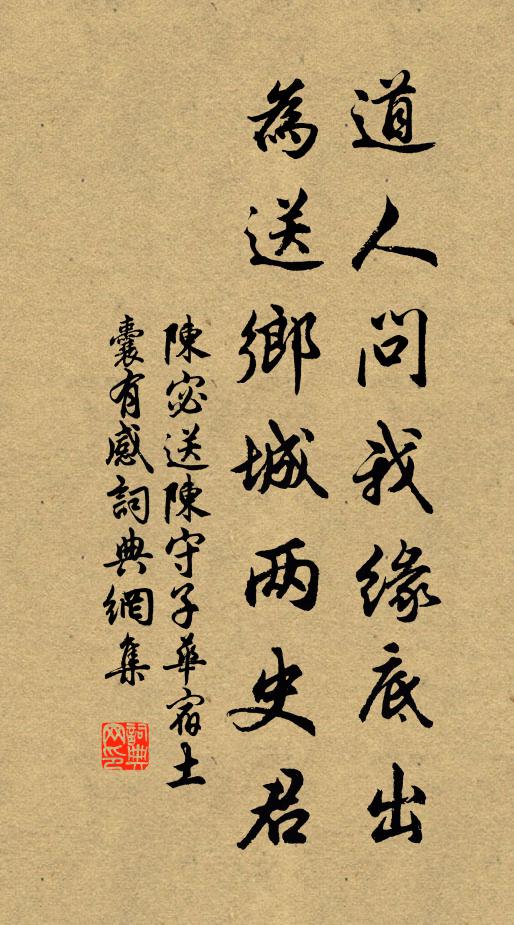 道人問我緣底出
為送鄉城两史君
陳宓送陳守子華宿土
囊有感詞典網集
詞典
网印